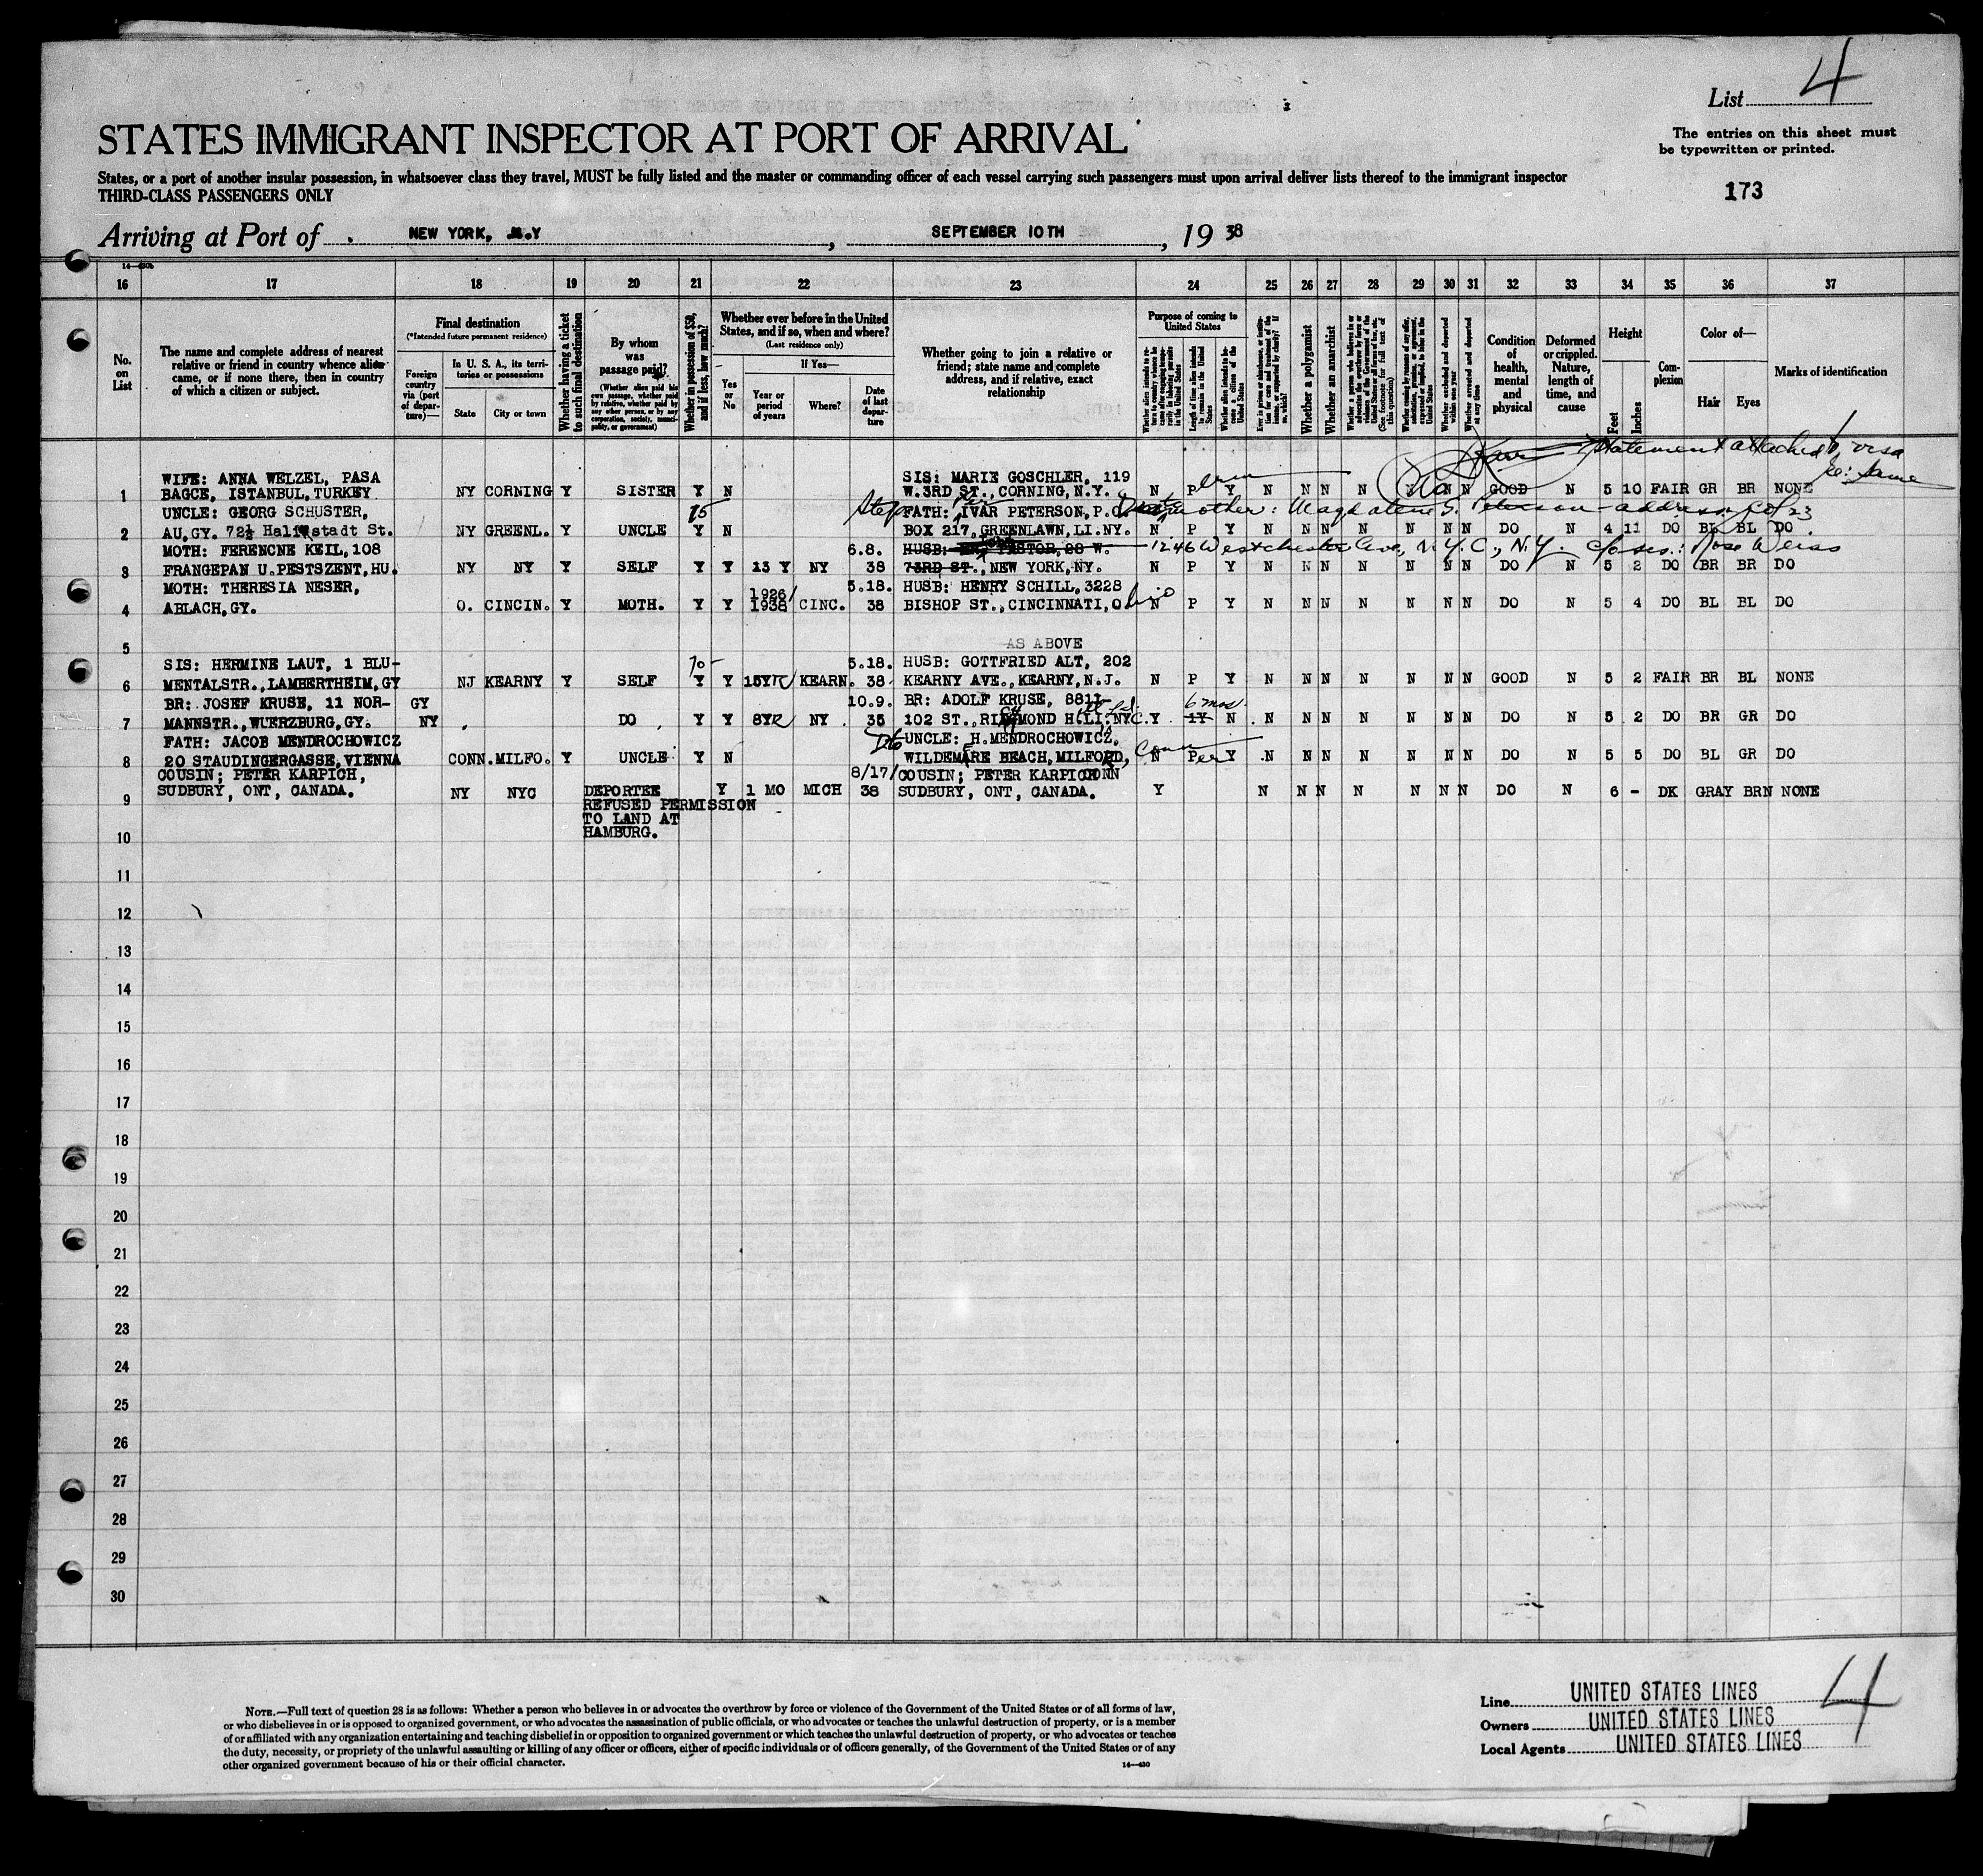 List 4
STATES IMMIGRANT INSPECTOR AT PORT OF ARRIVAL
The entries on this sheet must
be typewritten or printed.
States, or a port of another insular possession, in whatsoever class they travel, MUST be fully listed and the master or commanding officer of each vessel carrying such passengers must upon arrival deliver lists thereof to the immigrant inspector
THIRD-CLASS PASSENGERS ONLY
173
Arriving at Port of NEW YORK, N.Y , SEPTEMBER 10TH , 19 38
16 17 18 19 20 21 22 23 24 25 26 27 28 29 30 31 32 33 34 35 36 37
No. on List
The name and complete address of nearest relative or friend in country whence alien came, or if none there, then in country of which a citizen or subject.
Final destination
(*Intended future permanent residence)
Foreign country via (port of departure)—
In U. S. A., its territories or possessions
State City or town
Whether having a ticket to such final destination
By whom was passage paid?
(Whether alien paid his own passage, whether paid by relative, whether paid by any other person, or by any corporation, society, municipality, or government)
Whether in possession of $50, and if less, how much?
Whether ever before in the United States, and if so, when and where?
(Last residence only)
Yes or No
If Yes—
Year or period of years
Where?
Date of last departure
Whether going to join a relative or friend; state name and complete address, and if relative, exact relationship
Purpose of coming to United States
Length of time alien intends to remain in the United States
Whether alien intends to become a citizen of the United States
Whether a polygamist
Whether an anarchist
(See footnote for full text of this question)
Whether excluded and deported within one year
Whether arrested and deported at any time
Condition of health, mental and physical
Deformed or crippled. Nature, length of time, and cause
Height
Feet Inches
Complexion
Color of—
Hair Eyes
Marks of identification
Statement attached to visa
re: same
WIFE: ANNA WELZEL, PASA SIS: MARIE GOSCHLER, 119
1 BAGCE, ISTANBUL, TURKEY NY CORNING Y SISTER Y N W.3RD ST., CORNING, N.Y. N P Y N N N N N N N GOOD N 5 10 FAIR GR BR NONE
UNCLE: GEORG SCHUSTER, 75 Step FATH: IVAR PETERSON, P.O. mother: Magdalene S. Peterson - address col 23
2 AU,GY. 72½ Hallstadt St. NY GREENL. Y UNCLE Y N BOX 217, GREENLAWN, LI.NY. N P Y N N N N N N N DO N 4 11 DO BL BL DO
MOTH: FERENCNE KEIL, 108 6.8. HUSB: PASTOR, 28 W. 1246 Westchester Ave, N.Y.C., N.Y. c/o sis.: Rose Weiss
3 FRANGEPAN U.PESTSZENT, HU. NY NY Y SELF Y Y 13 Y NY 38 73RD ST., NEW YORK, NY. N P Y N N N N N N N DO N 5 2 DO BR BR DO
MOTH: THERESIA NESER, 1926/ 5.18. HUSB: HENRY SCHILL, 3228
4 ABLACH, GY. O. CINCIN. Y MOTH. Y Y 1938 CINC. 38 BISHOP ST., CINCINNATI, Ohio N P Y N N N N N N N DO N 5 4 DO BL BL DO
5 AS ABOVE
SIS: HERMINE LAUT, 1 BLU- 70- 5.18. HUSB: GOTTFRIED ALT, 202
6 MENTALSTR., LAMBERTHEIM, GY NJ KEARNY Y SELF Y Y 15YR KEARN. 38 KEARNY AVE., KEARNY, N.J. N P Y N N N N N N N GOOD N 5 2 FAIR BR BL NONE
BR: JOSEF KRUSE, 11 NOR- GY 10.9. BR: ADOLF KRUSE, 8811 6 mos.
7 MANNSTR., WUERZBURG, GY. NY DO Y Y 8YR NY 35 102 ST., RICHMOND H.LI.NYC. Y 1Y N N N N N N N N DO N 5 2 DO BR GR DO
FATH: JACOB MENDROCHOWICZ UNCLE: H. MENDROCHOWICZ,
8 20 STAUDINGERGASSE, VIENNA CONN. MILFO. Y UNCLE Y N WILDEMERE BEACH, MILFORD, Conn N Per Y N N N N N N N DO N 5 5 DO BL GR DO
COUSIN; PETER KARPICH, 8/17/ COUSIN; PETER KARPICH CONN
9 SUDBURY, ONT, CANADA. NY NYC DEPORTEE Y 1 MO MICH 38 SUDBURY, ONT, CANADA. Y N N N N N N N DO N 6 - DK GRAY BRN NONE
REFUSED PERMISSION
TO LAND AT
10 HAMBURG.
11
12
13
14
15
16
17
18
19
20
21
22
23
24
25
26
27
28
29
30
NOTE.—Full text of question 28 is as follows: Whether a person who believes in or advocates the overthrow by force or violence of the Government of the United States or of all forms of law,
or who disbelieves in or is opposed to organized government, or who advocates the assassination of public officials, or who advocates or teaches the unlawful destruction of property, or is a member
of or affiliated with any organization entertaining and teaching disbelief in or opposition to organized government or which teaches the unlawful destruction of property, or who advocates or teaches
the duty, necessity, or propriety of the unlawful assaulting or killing of any officer or officers, either of specific individuals or of officers generally, of the Government of the United States or of any
other organized government because of his or their official character.
14—430
Line UNITED STATES LINES
Owners UNITED STATES LINES
Local Agents UNITED STATES LINES
4